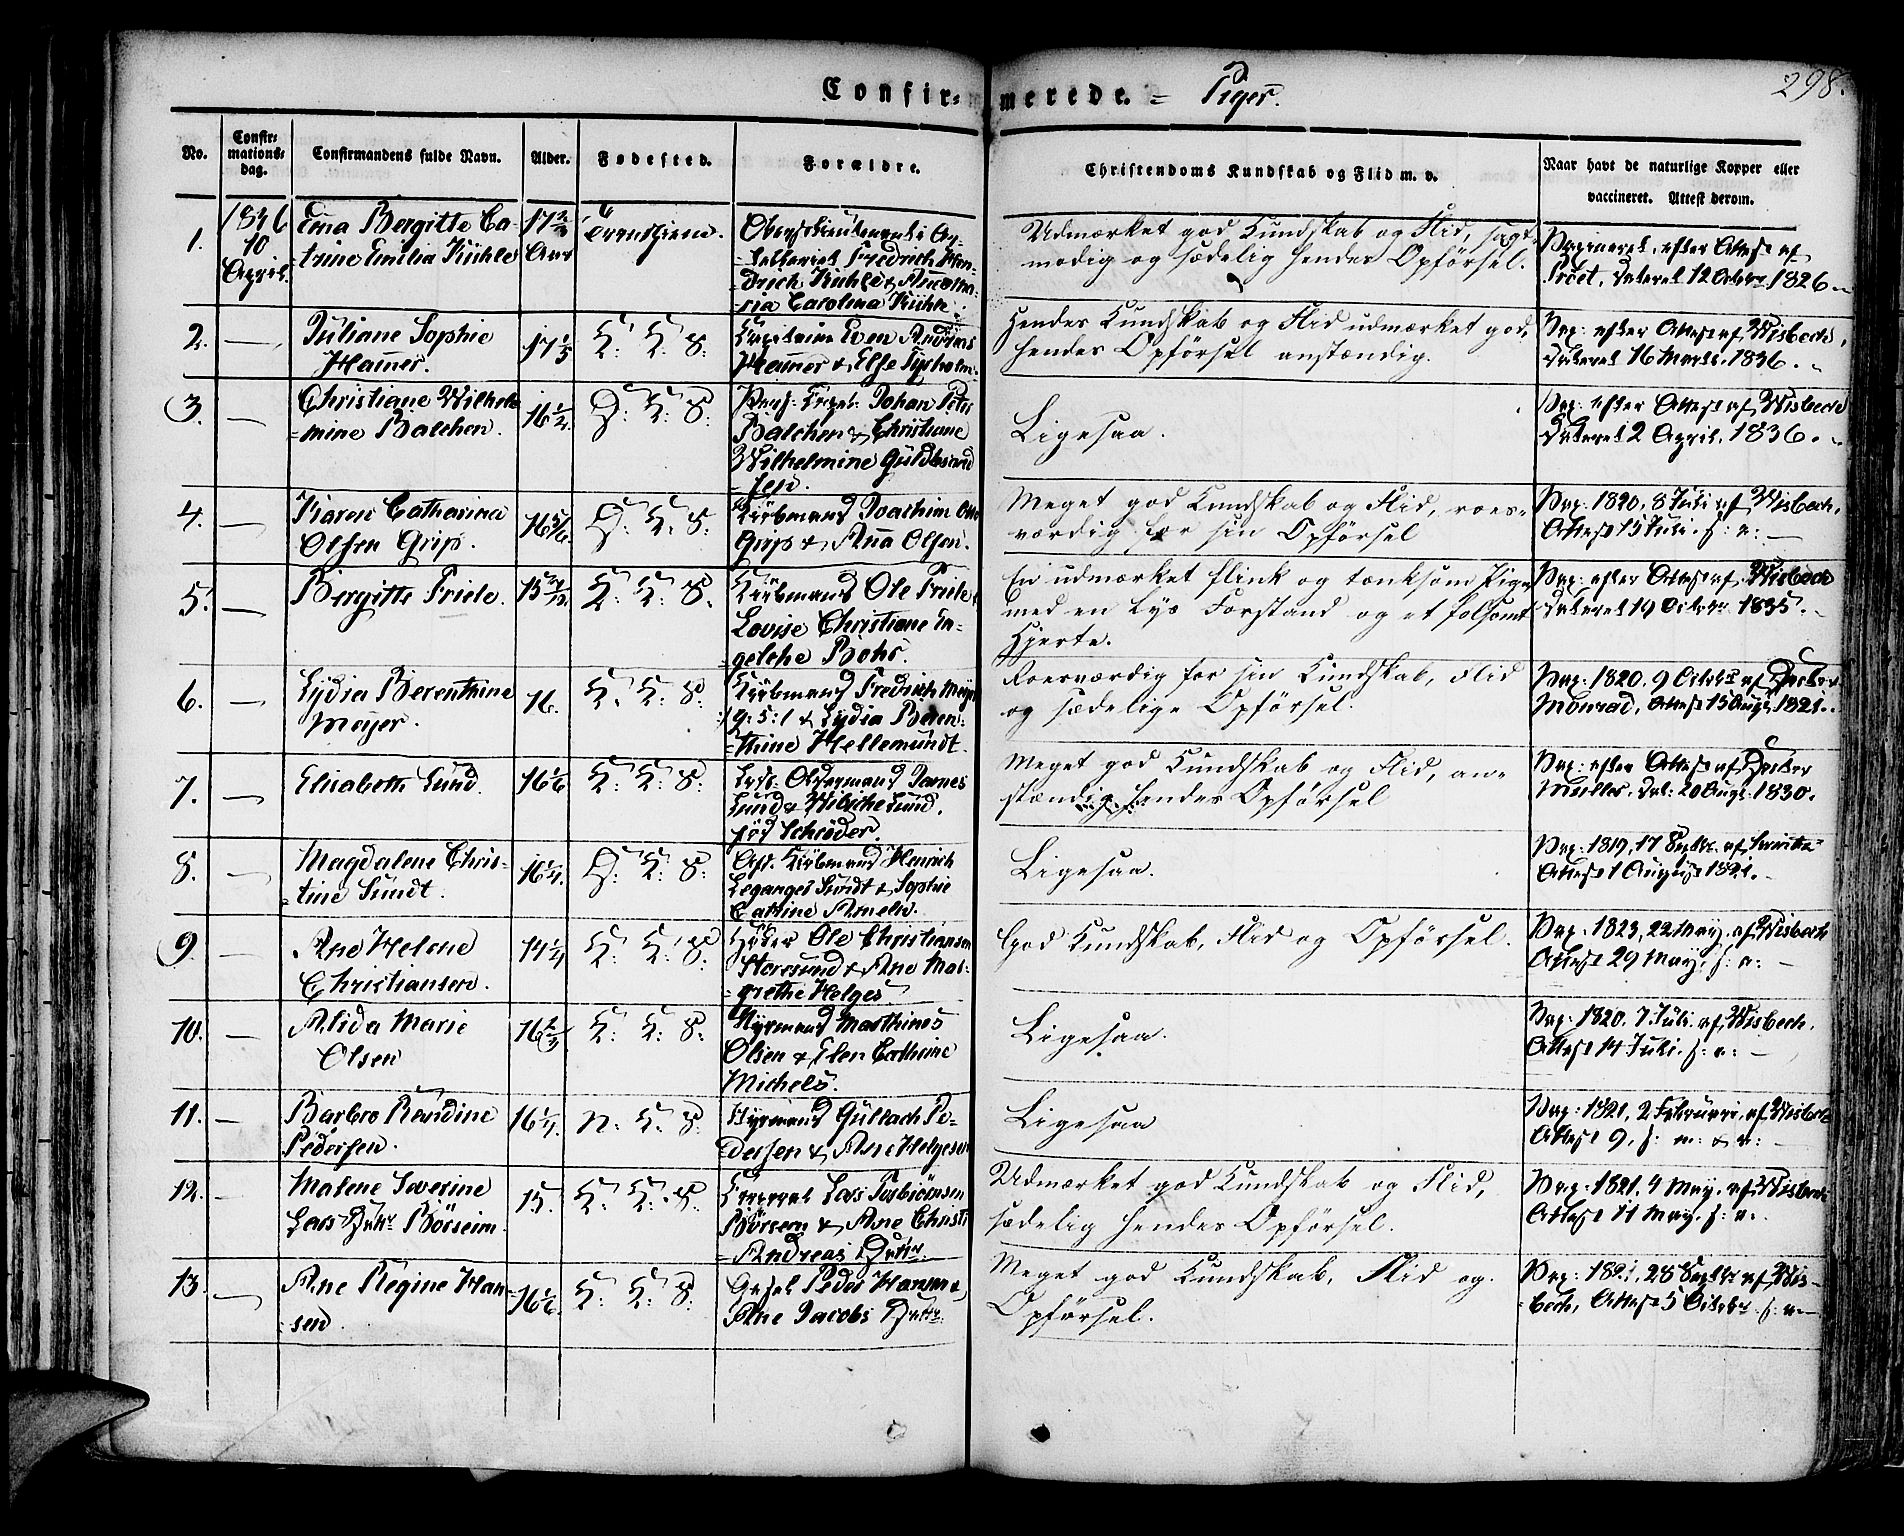 Confirmerede. = Piger.
298.
No.
Confir-
mations-
dag.
Confirmandens fulde Navn.
Alder.
Fødested.
Forældre.
Christendoms Kundskab og Flid m. v.
Naar havt de naturlige Kopper eller
vaccineret. Attest derom.
1.
1836
10
April.
Bergitte Ca-
trine Emilia Kühle
17
Aar
Trondhjem.
Fredrich Hen-
drich Kühle &
ria Carolina Kühle.
Udmærket god Kundskab og Flid, sagt-
modig og sædelig hendes Opførsel.
Vaxineret, efter Attest af
dateret 12 Octbr. 1826.
2.
Juliane Sophie
Hamer.
17 1/3
K: K: S:
Capitaine Even
Hamer & Else
Hendes Kundskab og Flid udmærket god,
hendes Opførsel anstændig.
Vax: efter Attest af Wisbech,
dateret 16 Marts. 1836.
3.
Christiane Wilhel-
mine Balchen.
16 1/2
D: K: S:
Johan Peter
Balchen & Christiane
Wilhelmine Guldbrand-
sen.
Ligesaa.
Vax: efter Attest af Wisbech
dateret 2 April, 1836.
4.
Karen Catharina
Olsen Grip.
16 5/6
D: K: S:
Kiøbmand Joachim
Grip & Ana Olsen.
Meget god Kundskab og Flid, roes-
værdig for sin Opførsel
Vax: 1820, 8 Juli af Wisbech,
Attest 15 Juli. s: a:
5.
Bergitte Friele.
15
K: K: S:
Kiøbmand Ole Friele &
Lovise Christiane In-
gelche Rohs.
En udmærket flink og tænksom Pige
med en lys Forstand og et følsomt
Hjerte.
Vax: efter Attest af Wisbech
dateret 19 Octobr 1835.
6.
Lydia Berenthine
Meyer.
16.
K: K: S:
Kiøbmand Fredrich Meyer
& Lydia Beren-
thine Hellemundt.
Roesværdig for sin Kundskab, Flid
og sædelige Opførsel.
Vax: 1820. 9 Octobr af Doctor
Monrad, Attest 15 Aug. 1821.
7.
Elisabeth Lund.
16 1/6
K: K: S:
Oldermand James
Lund & Wibiche Lund,
fød Schrøder.
Meget god Kundskab og Flid, an-
stændig hendes Opførsel
Vax: efter Attest af Doctor
Müller. dat: 20 Aug. 1830.
8.
Magdalene Chris-
tine Sundt.
16 1/4.
D: K: S:
Afd. Kiøbmand Henrich
Leganger Sundt & Sophie
Catrine Ameln.
Ligesaa.
Vax: 1819, 17 Septbr. af
Attest 1 August 1821.
9.
Ane Helene
Christiansen.
14 1/4
K: K: S:
Ole Christiansen
Storesund & Ane Mar-
grethe Helges
God Kundskab, Flid og Opførsel.
Vax: 1823, 22 May. af Wisbech
Attest 29 May, s: a:
10.
Alida Marie
Olsen
16 2/3
K: K: S:
Styrmand Marthinus
Olsen & Elen Cathrine
Michels.
Ligesaa.
Vax: 1820. 7 Juli. af Wisbech.
Attest 14 Juli. s: a:
11.
Barbro Randine
Pedersen.
16 1/4.
N: K: S:
Styrmand Gullach Pe-
dersen & Ane Helgesen
Ligesaa
Vax: 1821, 2 Februari, af Wisbech
Attest 9, s: m: & a:
12.
Malene Severine
Lars Dattr Børseim.
15.
K: K: S:
Lars Torbiørnsen
Børsem & Ane Christi
Andreas Dattr.
Udmærket god Kundskab og Flid,
sædelig hendes Opførsel.
Vax: 1821. 4 May. af Wisbech
Attest 11 May. s: a:.
13.
Ane Regine Han-
sen.
16 1/6.
K: K: S:
Peder Hansen &
Ane Jacobs Dattr.
Meget god Kundskab, Flid og
Opførsel.
Vax: 1821, 28 Septbr af Wis-
bech, Attest 5 Octobr s: a: